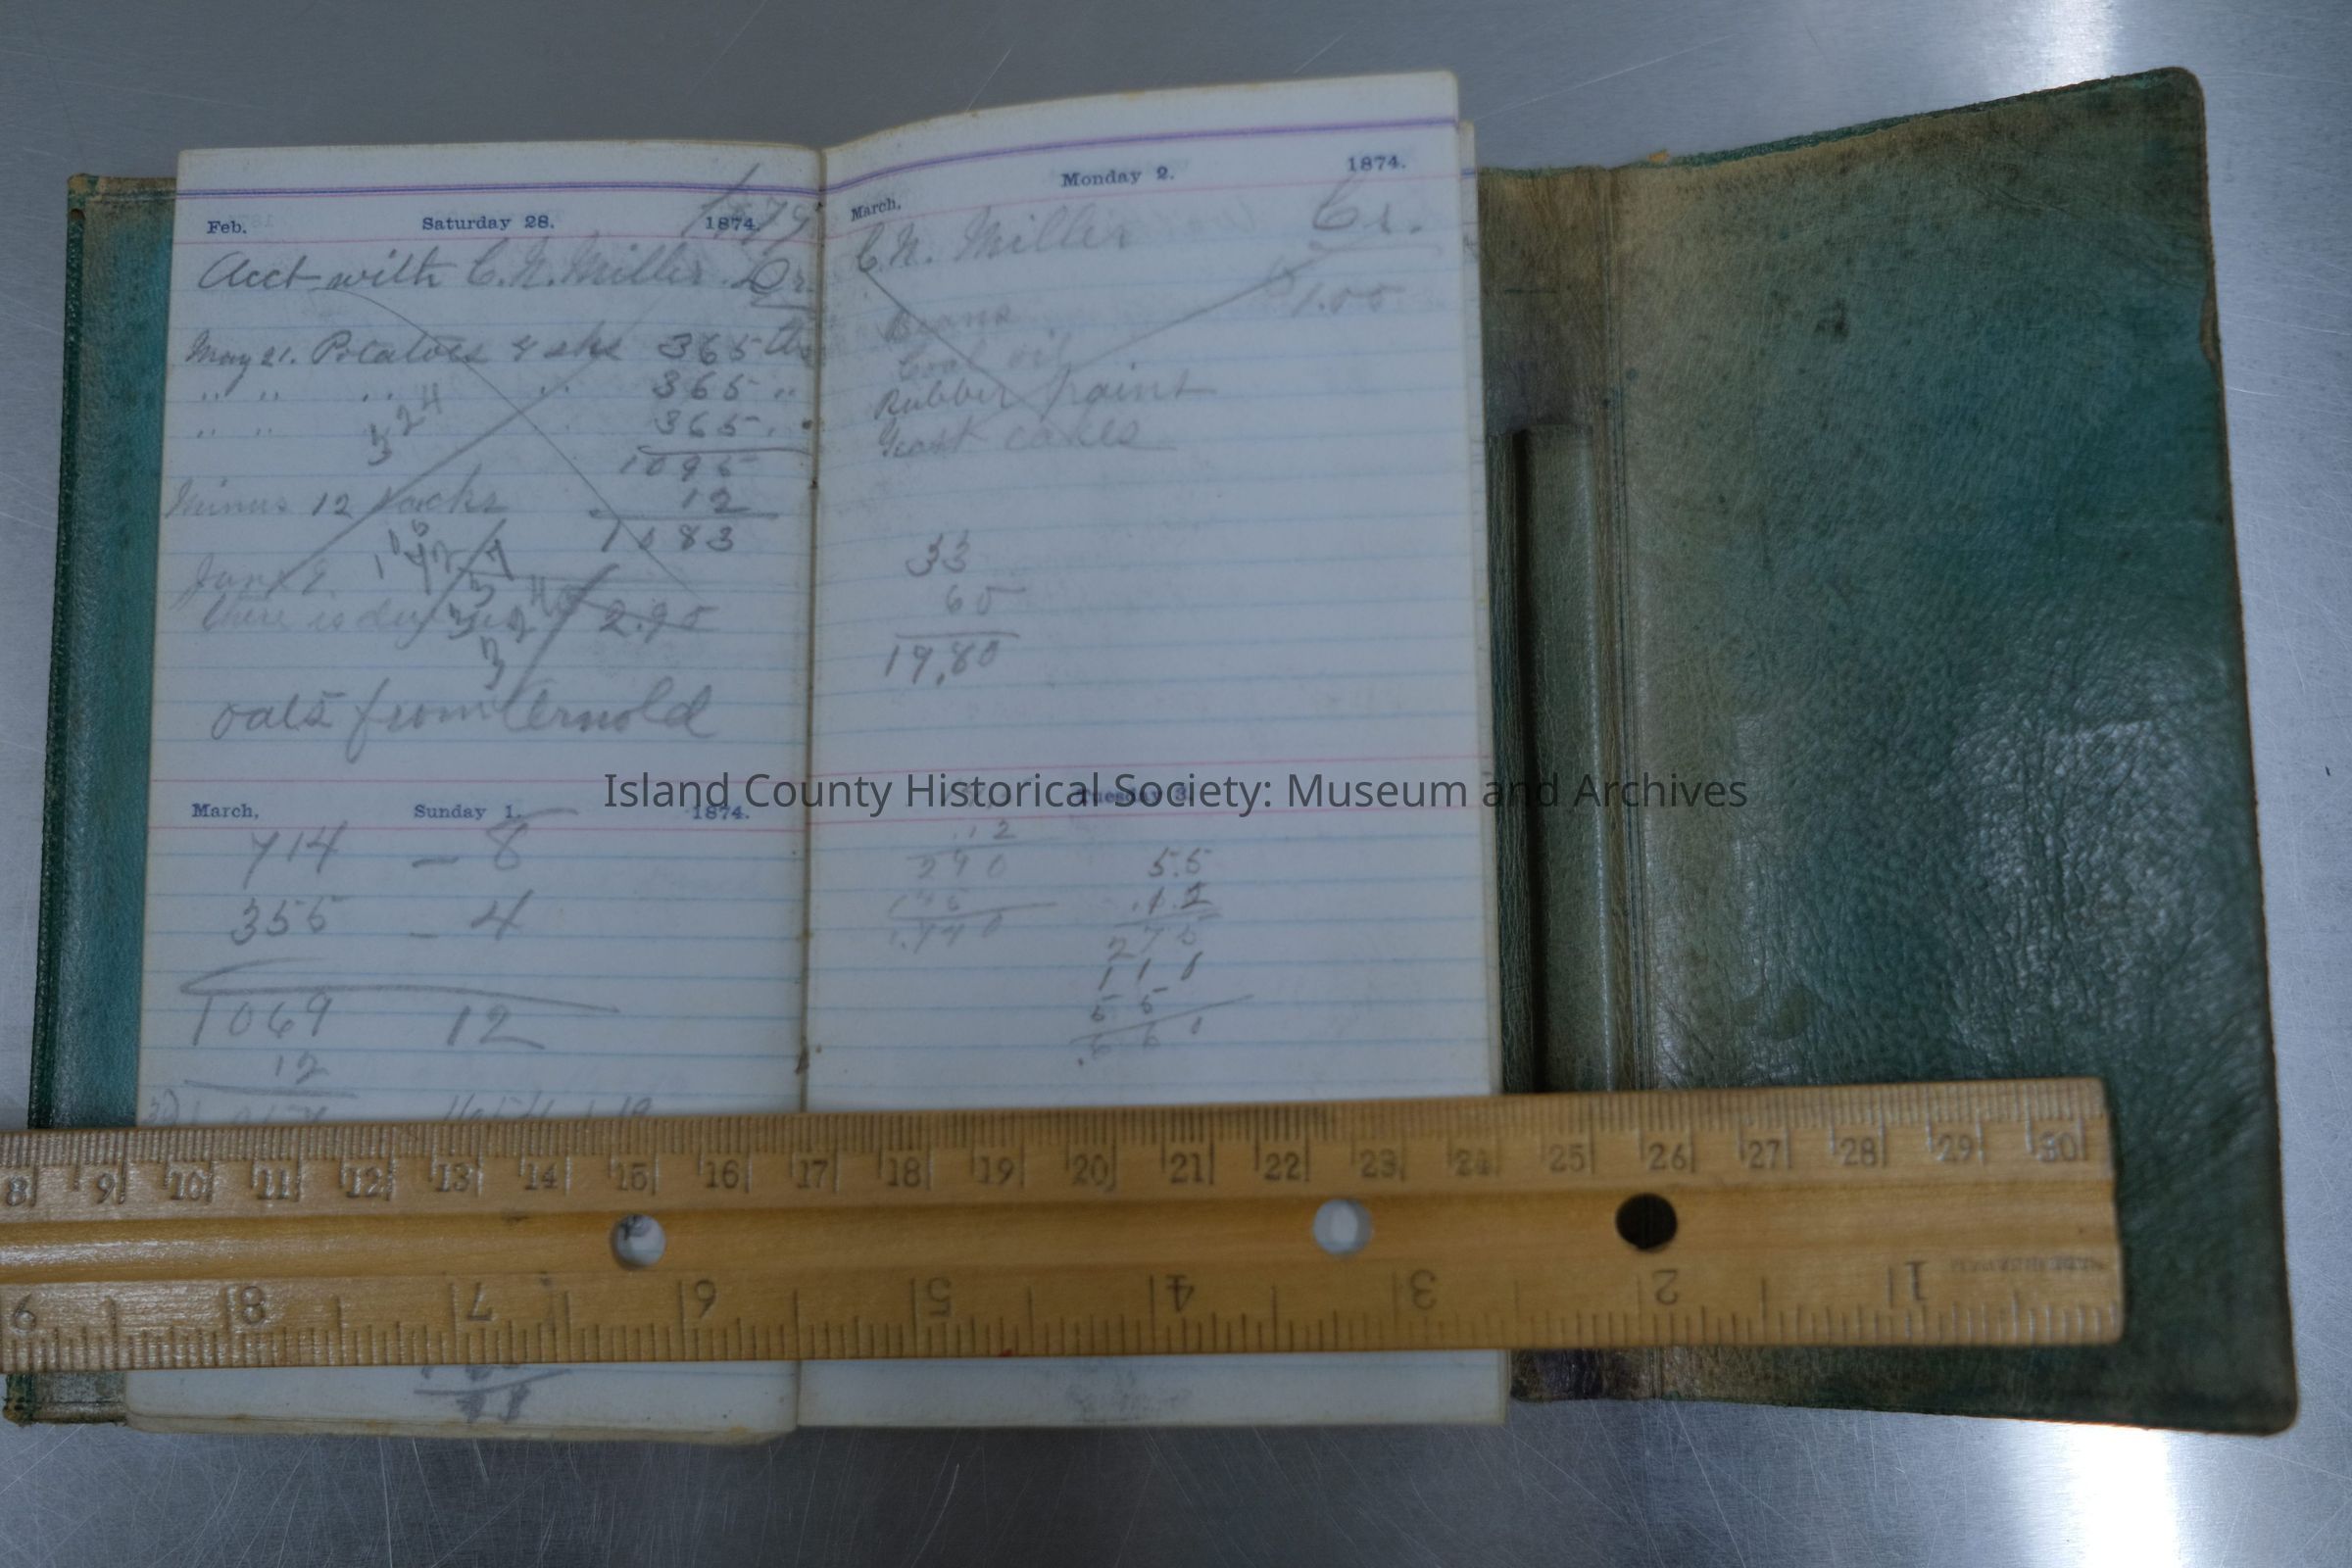 Feb. Saturday 28. 1874.
1879
Acct with C. N. Miller Dr.
May 21. Potatoes 4 sks 365 lbs
" " " " 365 "
" " " 365 "
324
1095
Minus 12 sacks 12
1083
Jan 2
there is due 2.90
oats from Arnold
March, Sunday 1. 1874.
714 - 8
355 - 4
1069 12
12
March, Monday 2. 1874.
C. N. Miller Cr.
Beans 1.00
Coal oil
Rubber paint
Yeast cakes
33
60
19,80
Tuesday 3.
.12
290
145
55
.12
275
110
55
.660
Island County Historical Society: Museum and Archives
8 9 10 11 12 13 14 15 16 17 18 19 20 21 22 23 24 25 26 27 28 29 30
9 8 7 6 5 4 3 2 1